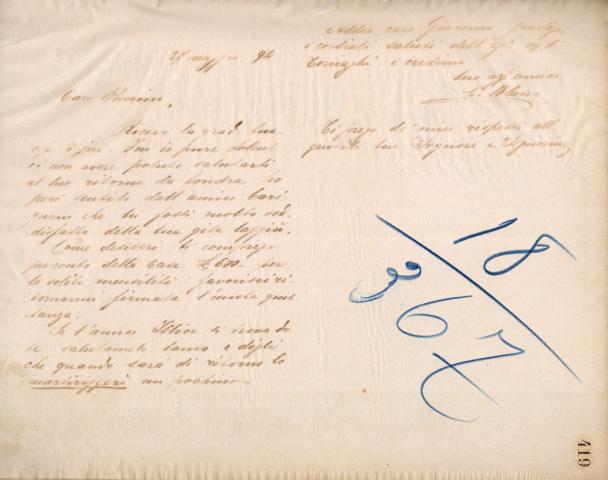 27 maggio 94
Caro Puccini,
Ricevo la grad. tua
e pure
di non avere potuto salutarti
al tuo ritorno da Londra. Ho
però sentito dall'amico Cari-
gnani che tu fosti molto sod-
disfatto della tua gita laggiù.
Come desideri ti compiego
per conto della Casa £ 600 per
la solita mensilità: favorisci ri-
tornarmi firmata l'unita quit-
tanza.
Se l'amico Illica si trova da
te salutamelo tanto e digli
che quando sarà di ritorno lo
martirizzerò un pochino.
Addio, caro Giacomo
i cordiali saluti dell'
Tornaghi e credimi
tuo aff. amico
C. Blanc
Ti prego di miei rispetti alla
tua Signora e Signorina
18
367
419